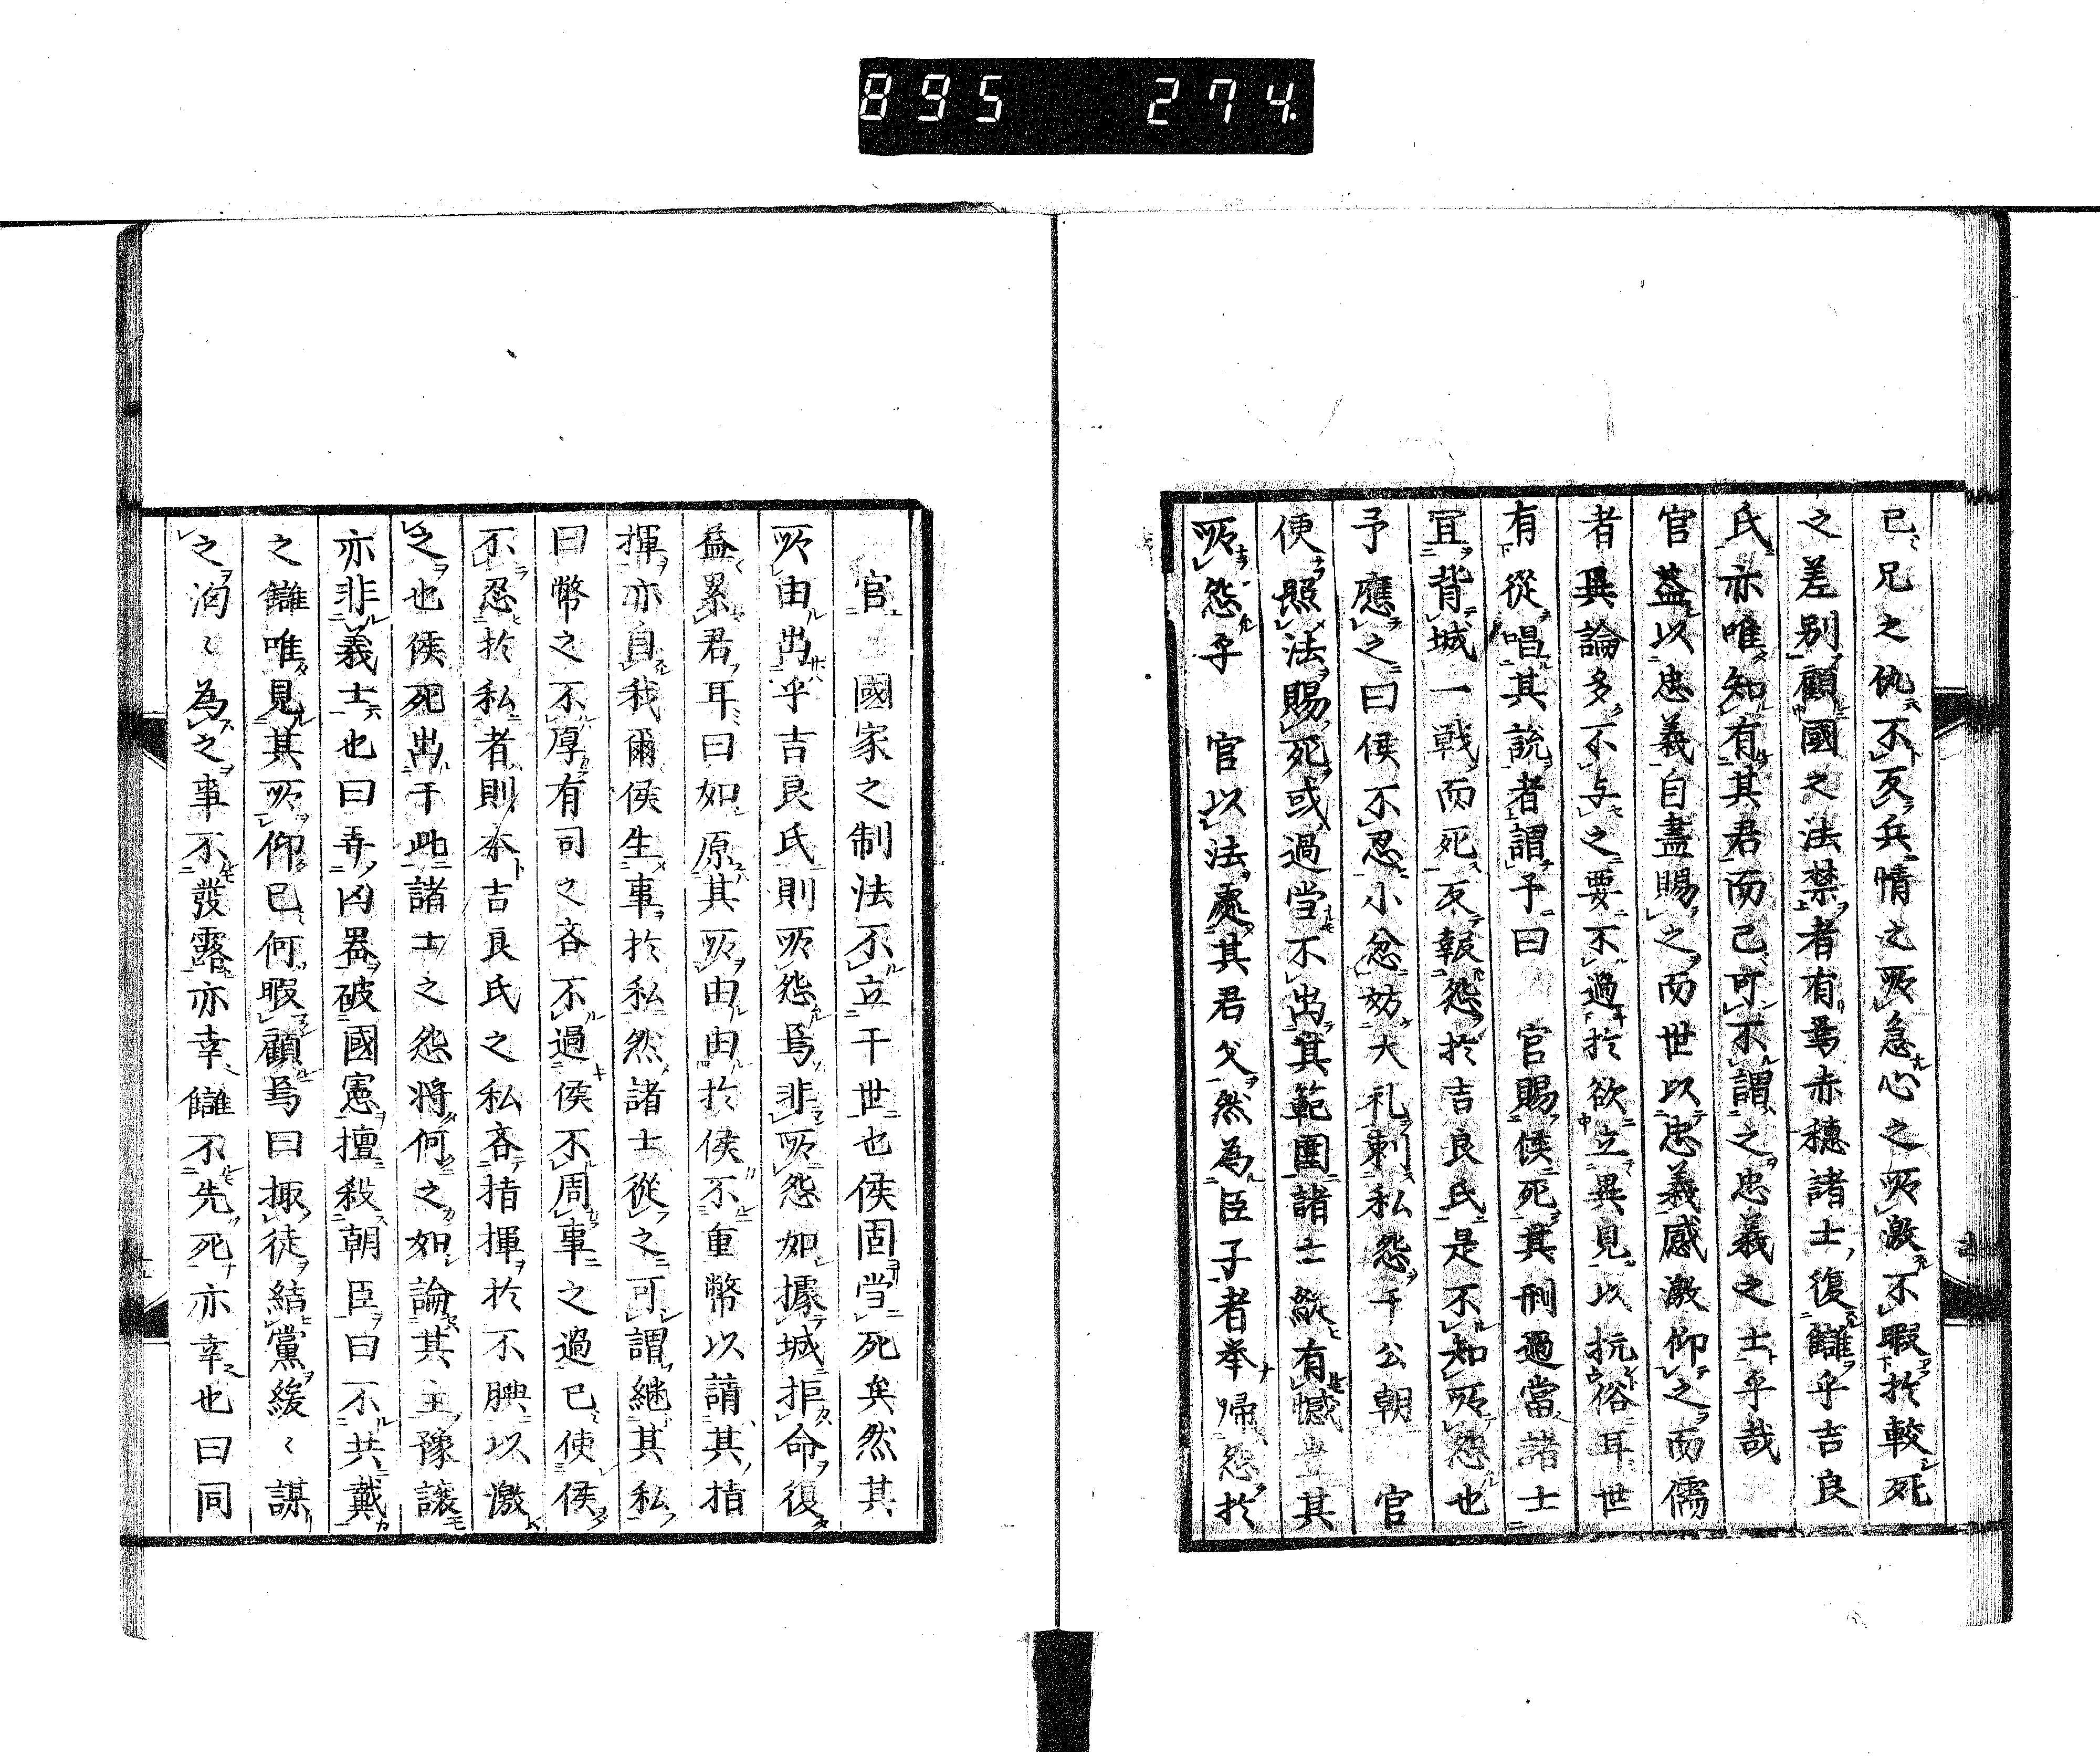 895 274.
已兄之仇不反兵情之所急心之所激不暇於較死
之差別顧國之法禁者有焉赤穗諸士復讎乎吉良
氏亦唯知有其君而已可不謂之忠義之士乎哉
官蓋以忠義自盡賜之而世以忠義感激仰之而儒
者異論多不与之要不過於欲立異見以抗俗耳世
有從唱其説者謂予曰　官賜侯死其刑過當諸士
宜背城一戦而死反報怨於吉良氏是不知所怨也
予應之曰侯不忍小忿妨大礼剌私怨干公朝　官
便照法賜死或過当不出其範圍諸士縦有憾豈其
所怨乎　官以法處其君父然為臣子者挙帰怨於
官　國家之制法不立干世也侯固当死矣然其
所由出乎吉良氏則所怨焉非所怨如據城拒命復
益累君耳曰如原其所由由於侯不重幣以請其指
揮亦自我爾侯生事於私然諸士從之可謂継其私
曰幣之不厚有司之吝不過侯不周事之過已使侯
不忍於私者則本吉良氏之私吝指揮於不腆以激
之也侯死出于此諸士之怨将何之如論其主豫讓
亦非義士也曰弄凶器破國憲擅殺朝臣曰不共戴
之讎唯見其所仰已何暇顧焉曰掫徒結黨緩〻謀
之洶〻為之事不發露亦幸讎不先死亦幸也曰同